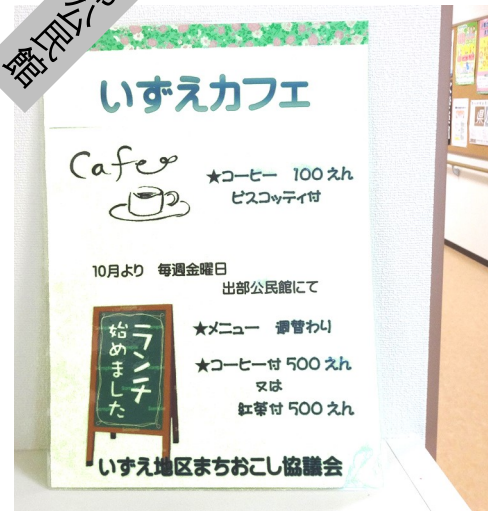 公民館
いずえカフェ
Cafe
★コーヒー 100えん
ビスコッティ付
10月より 毎週金曜日
出部公民館にて
ランチ
始めました
★メニュー 週替わり
★コーヒー付 500えん
又は
紅茶付 500えん
いずえ地区まちおこし協議会